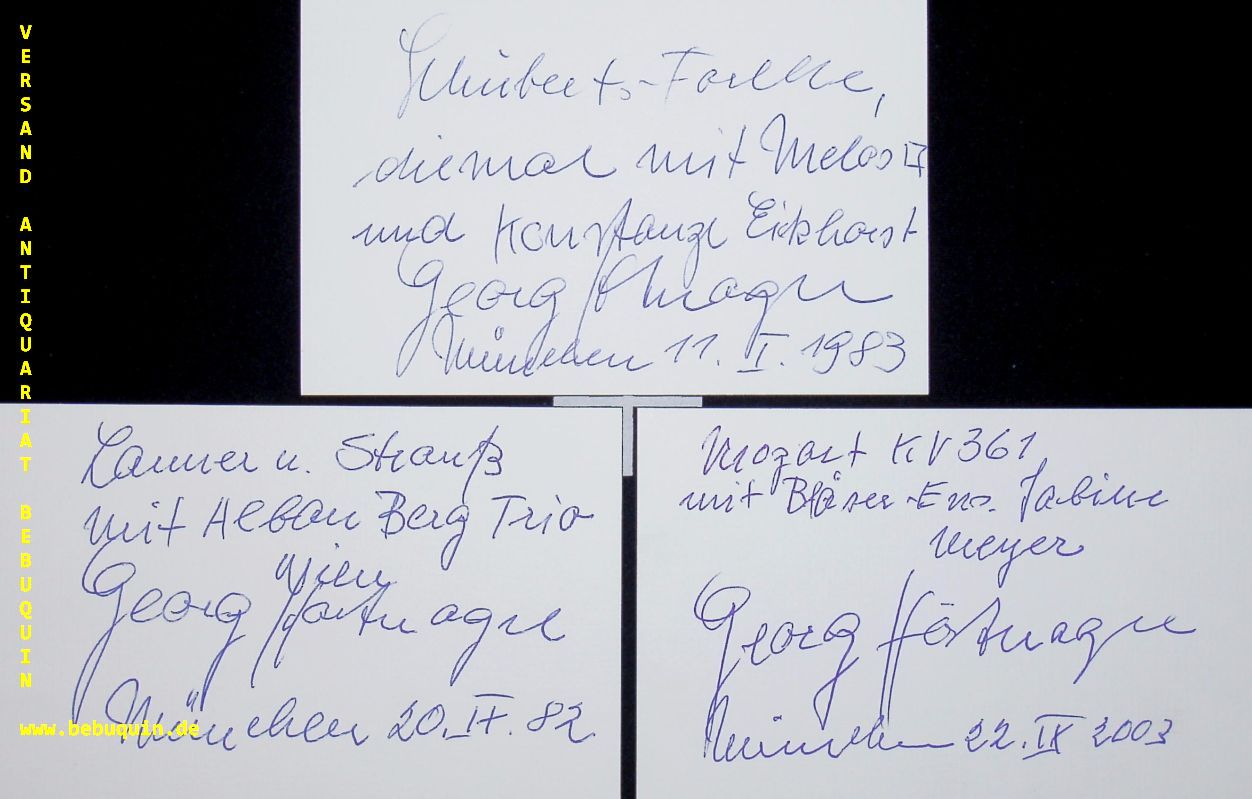 VERSAND ANTIQUARIAT BEBUQUIN
www.bebuquin.de
Schubert-Forelle,
diesmal mit Melos
und Konstanze Eickhorst
Georg Hörtnagel
München 11. I. 1983
Lanner u. Strauß
mit Alban Berg Trio
Wien
Georg Hörtnagel
München 20. 82
Mozart KV 361
mit Bläser-Ens. Sabine
Meyer
Georg Hörtnagel
München 22. IX 2003